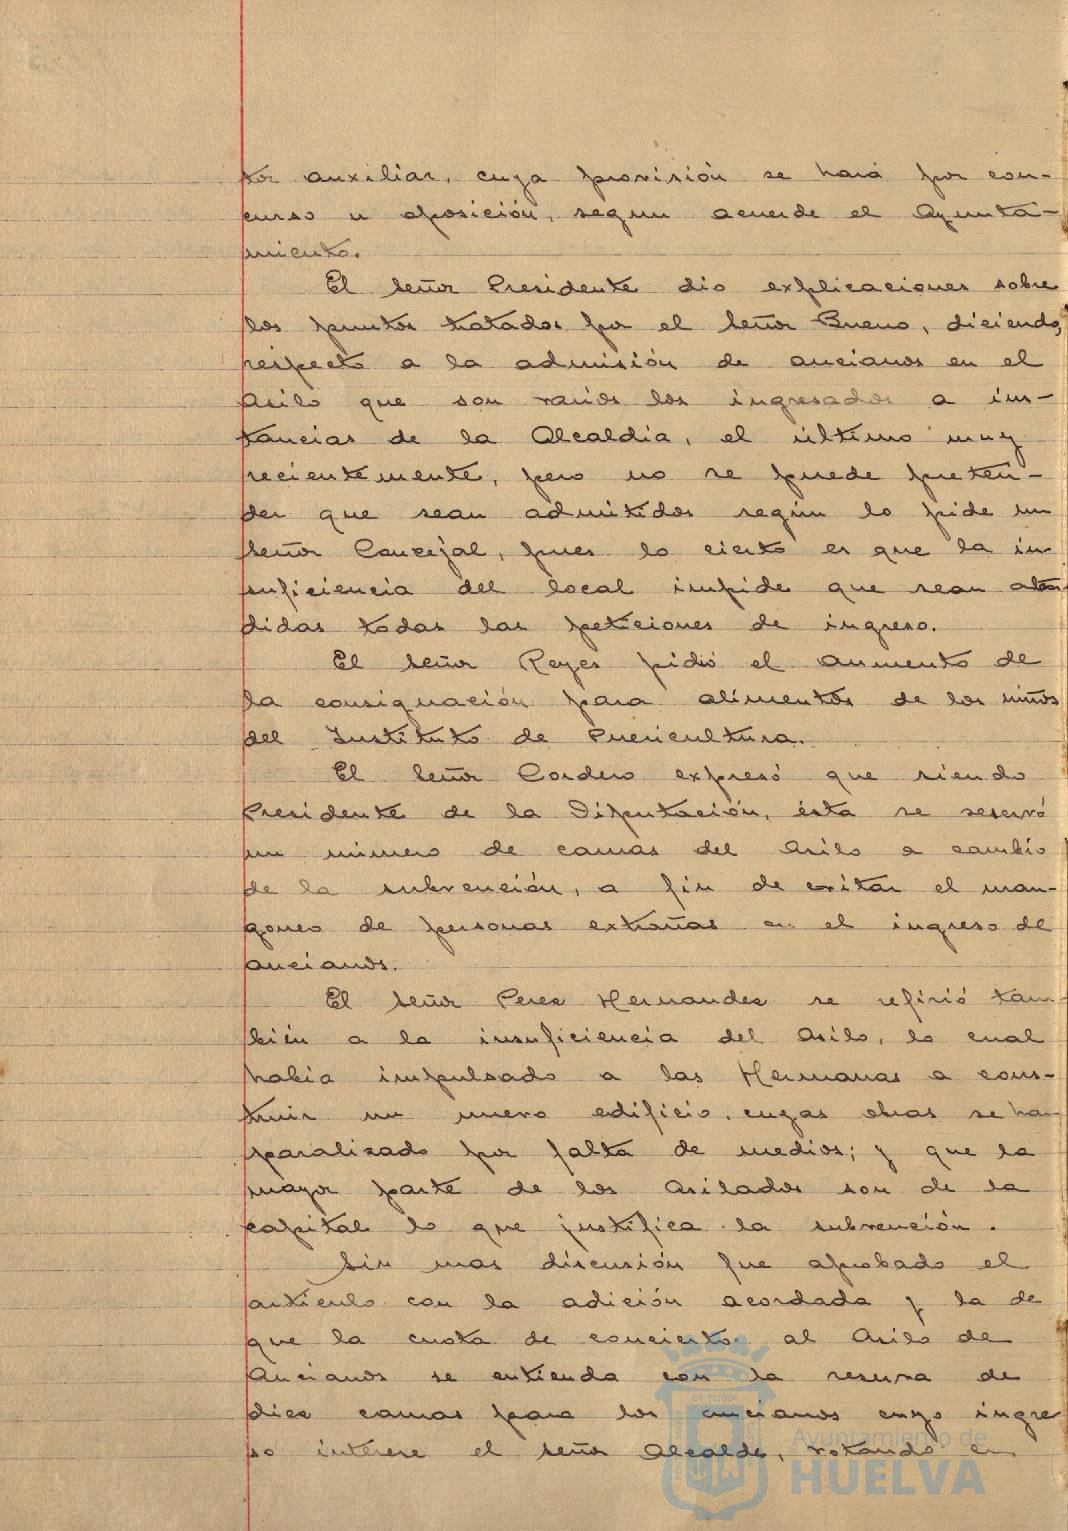 tor auxiliar, cuya provisión se hará por con-
curso u oposición, segun acuerde el Ayunta-
miento.
El Señor Presidente dio explicaciones sobre
los puntos tratados por el Señor Bueno, diciendo,
respecto a la admisión de ancianos en el
Asilo que son varios los ingresados a ins-
tancias de la Alcaldia, el último muy
recientemente, pero no se puede preten-
der que sean admitidos según lo pide un
Señor Concejal, pues lo cierto es que la in-
suficiencia del local impide que sean aten-
didas todas las peticiones de ingreso.
El Señor Reyes pidió el aumento de
la consignación para alimentos de los niños
del Instituto de Puericultura.
El Señor Cordero expresó que siendo
Presidente de la Diputación, ésta se reservó
un número de camas del Asilo a cambio
de la subvención, a fin de evitar el man-
goneo de personas extrañas en el ingreso de
ancianos.
El Señor Perez Hernandez se refirió tam-
bién a la insuficiencia del Asilo, lo cual
habia impulsado a las Hermanas a cons-
truir un nuevo edificio, cuyas obras se han
paralizado por falta de medios; y que la
mayor parte de los asilados son de la
capital lo que justifica la subvención.
Sin mas discusión fue aprobado el
artículo con la adición acordada y la de
que la cuota de concierto al Asilo de
Ancianos se entienda con la reserva de
diez camas para los ancianos cuyo ingre-
so interese el señor Alcalde, votando en
Ayuntamiento de
HUELVA